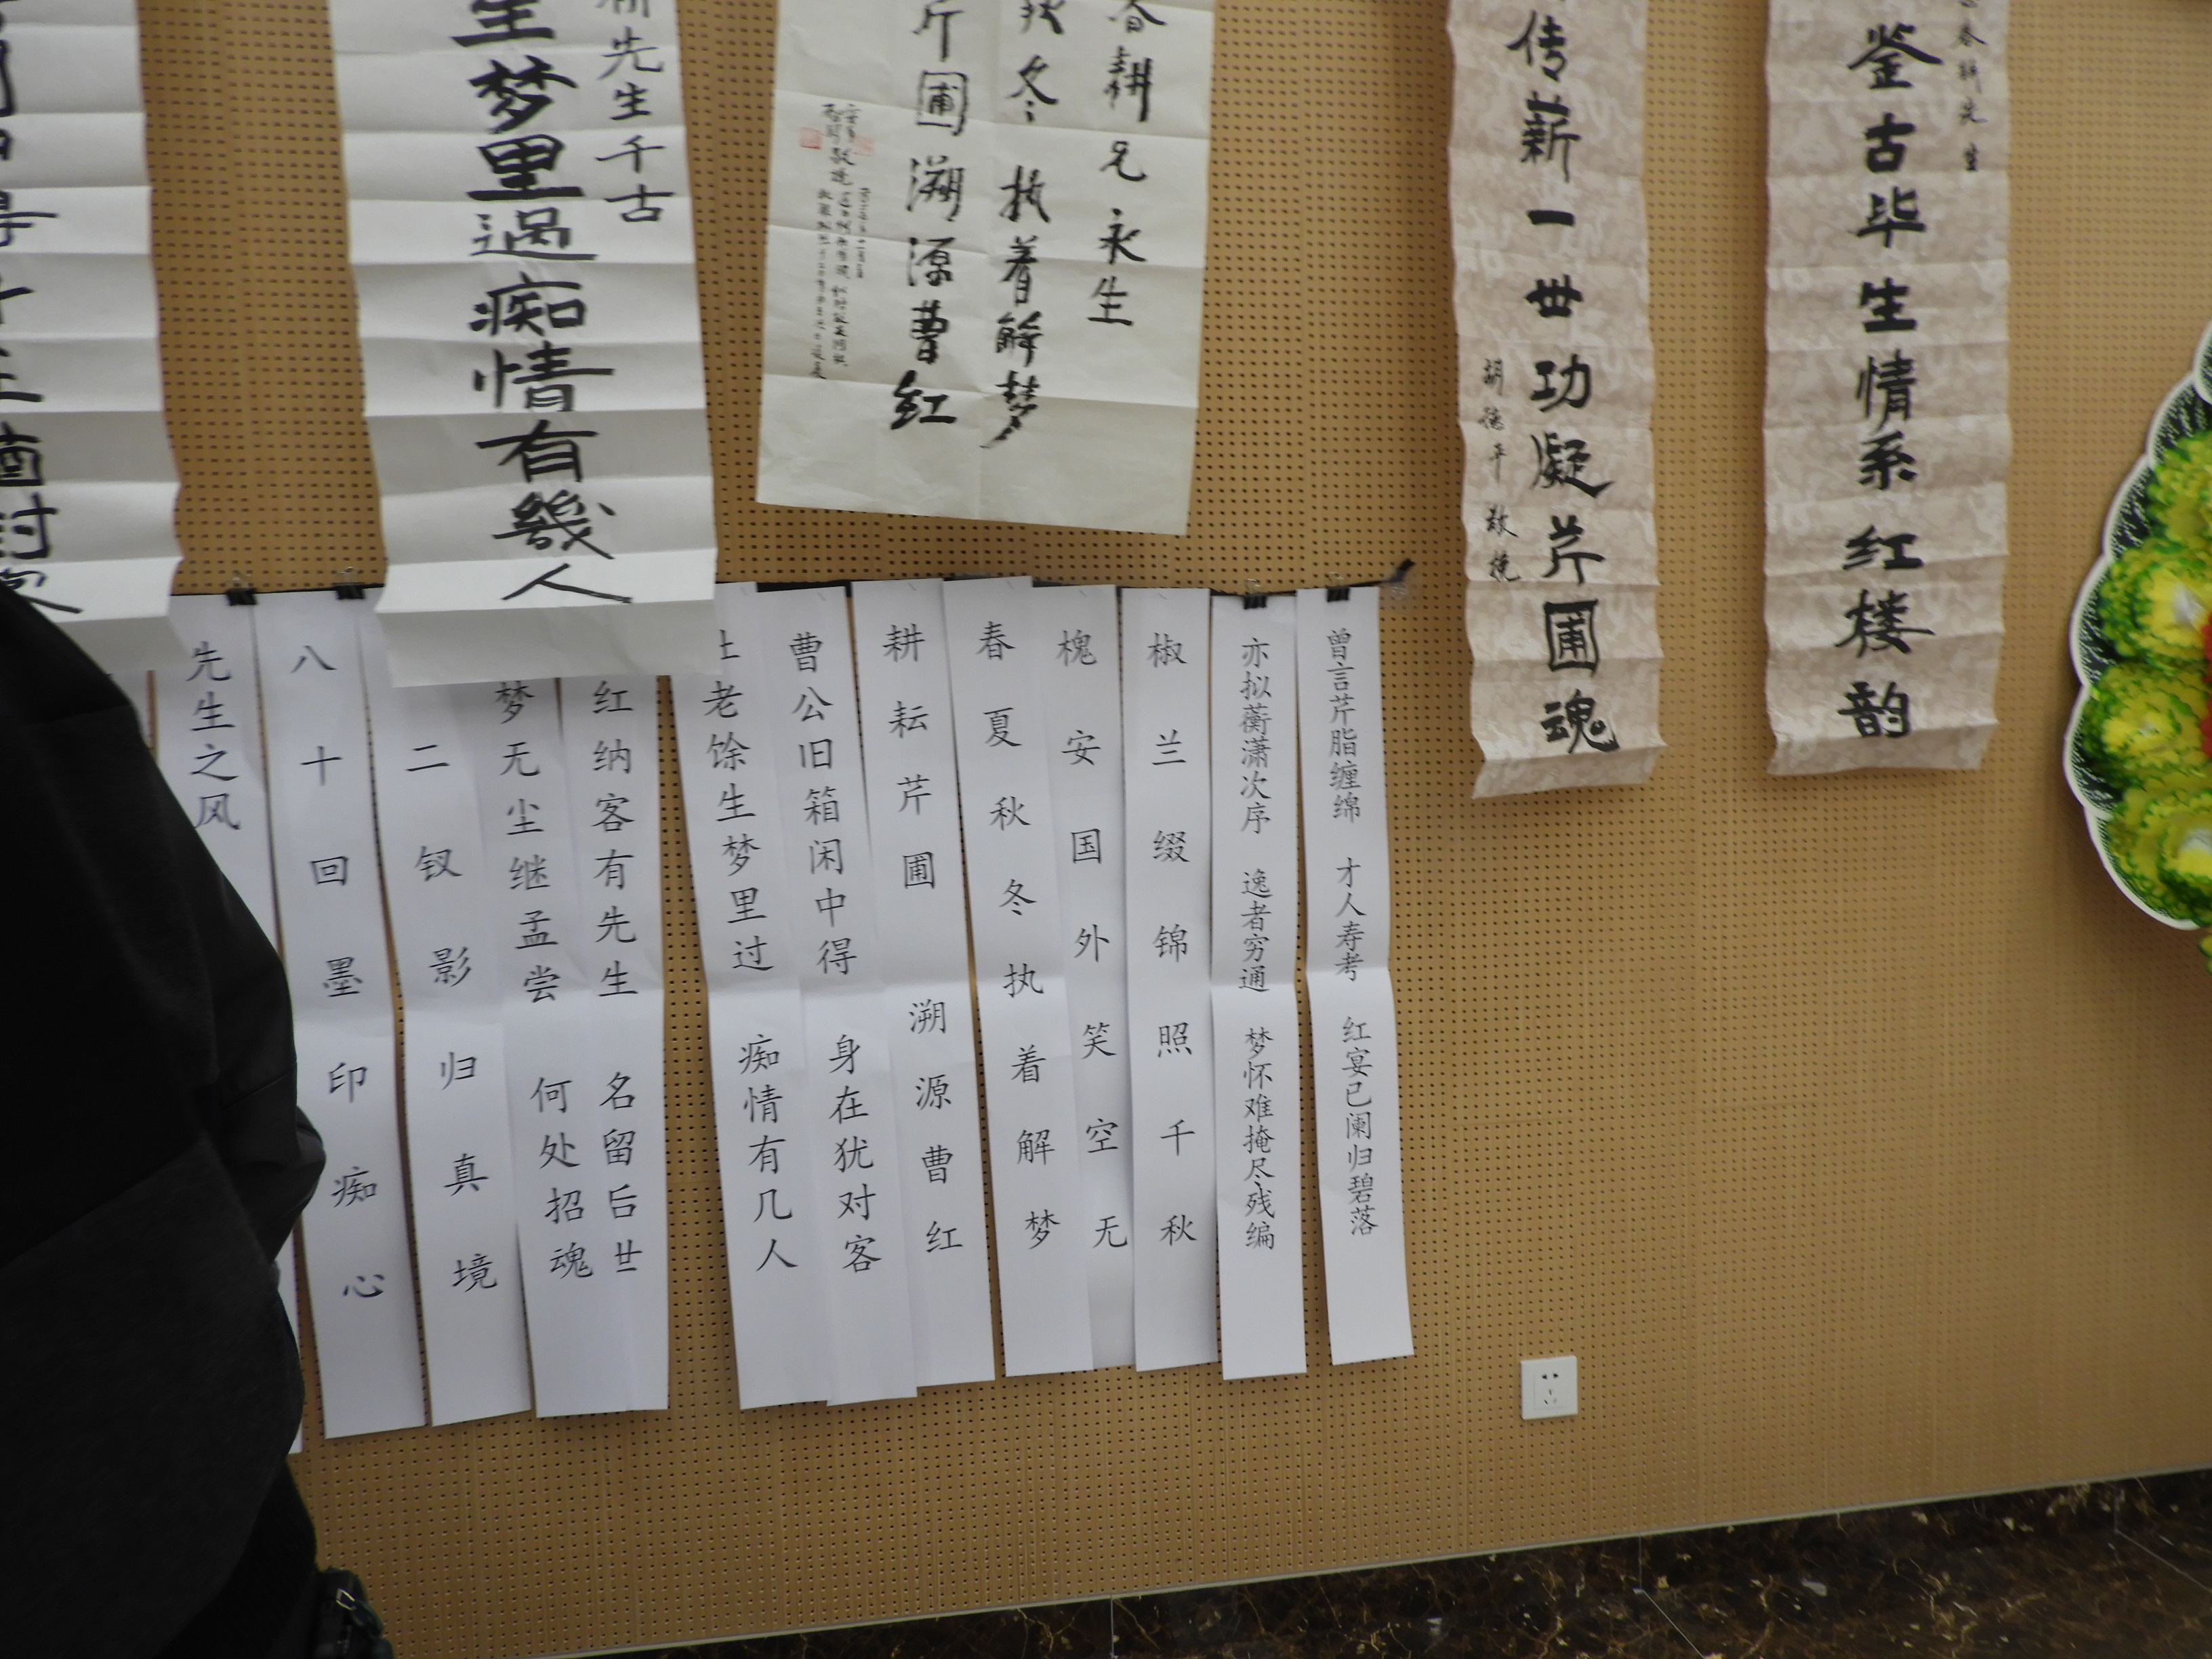 鉴古毕生情系红楼韵
春耕先生
传薪一世功凝芹圃魂
胡德平敬挽
春耕兄永生
秋冬执着解梦
芹圃溯源曹红
先生千古
生梦里過痴情有幾人
曾言芹脂缠绵 才人寿考 红宴已阑归碧落
亦拟蘅潇次序 逸者穷通 梦怀难掩尽残编
椒兰缀锦照千秋
槐安国外笑空无
春夏秋冬执着解梦
耕耘芹圃溯源曹红
曹公旧箱闲中得 身在犹对客
老馀生梦里过 痴情有几人
红纳客有先生 名留后世
梦无尘继孟尝 何处招魂
二钗影归真境
八十回墨印痴心
先生之风